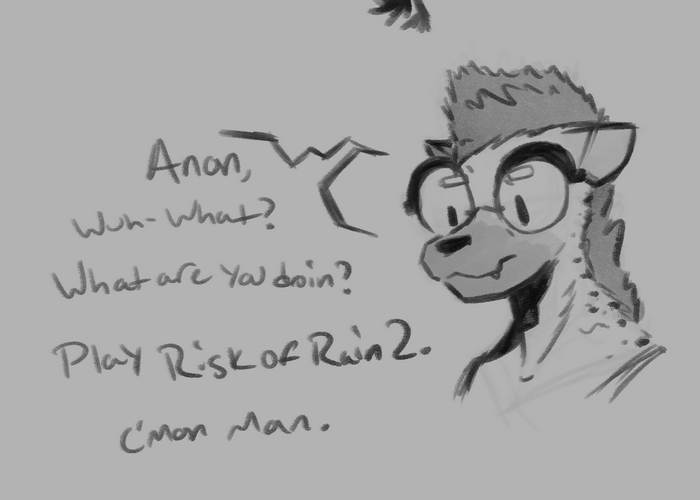 Anon,
Wuh-What?
What are you doin?
Play Risk of Rain 2.
C'mon Man.